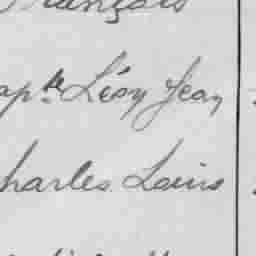 François
apte Léon Jean
harles Louis